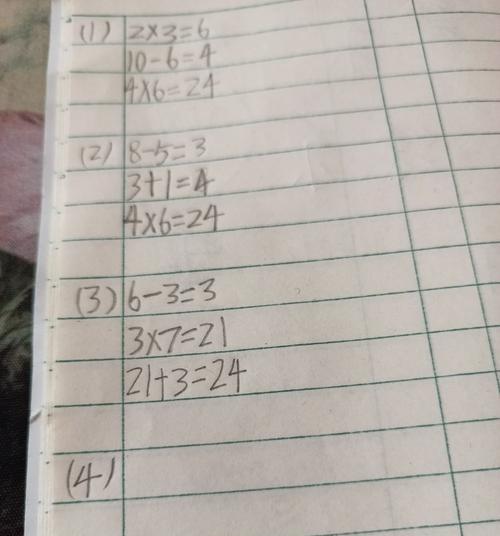 (1) 2×3=6
10-6=4
4×6=24
(2) 8-5=3
3+1=4
4×6=24
(3) 6-3=3
3×7=21
21+3=24
(4)